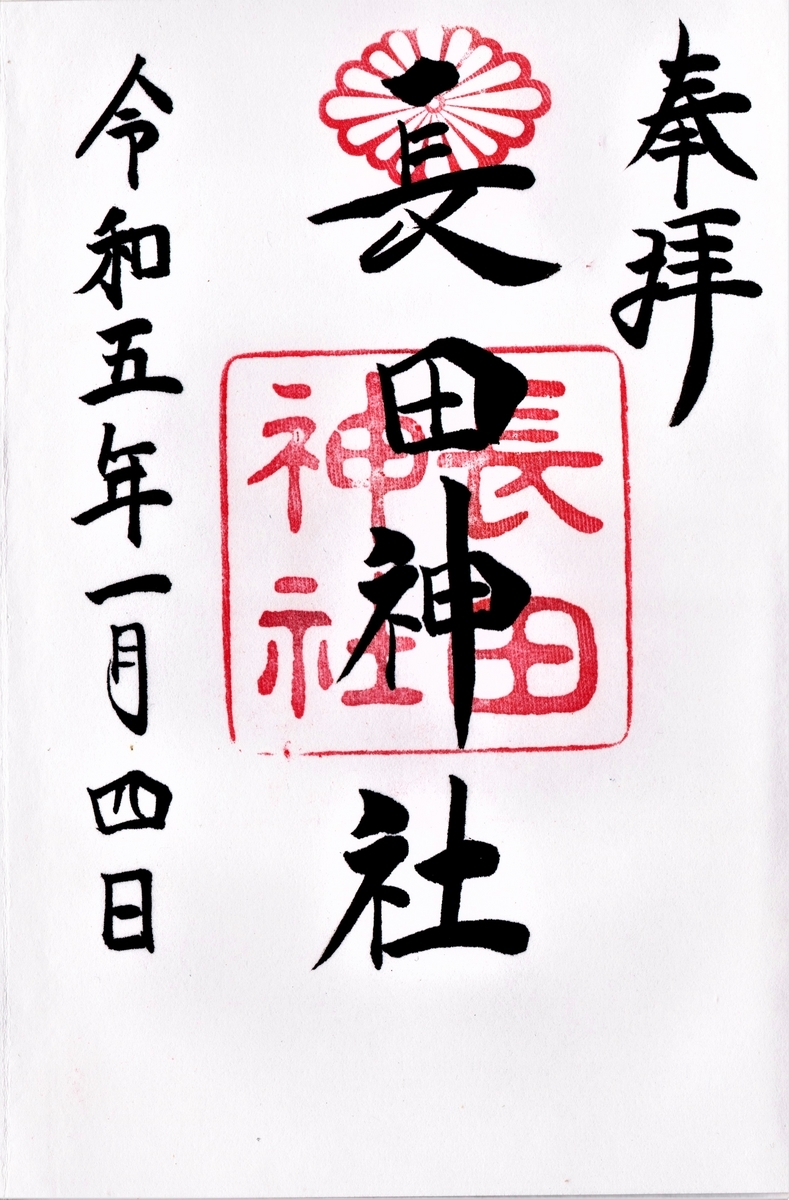 奉拝
長田神社
長田
神社
令和五年一月四日